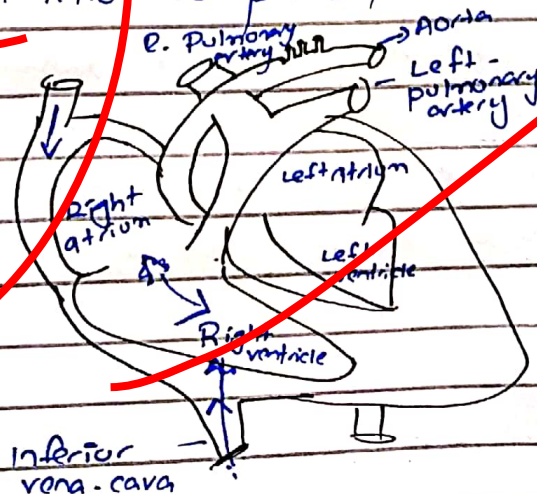 e. Pulmonary
artery
Aorta
Left -
pulmonary
artery
Left atrium
Right
atrium
Left
ventricle
Right
ventricle
Inferior
vena. cava